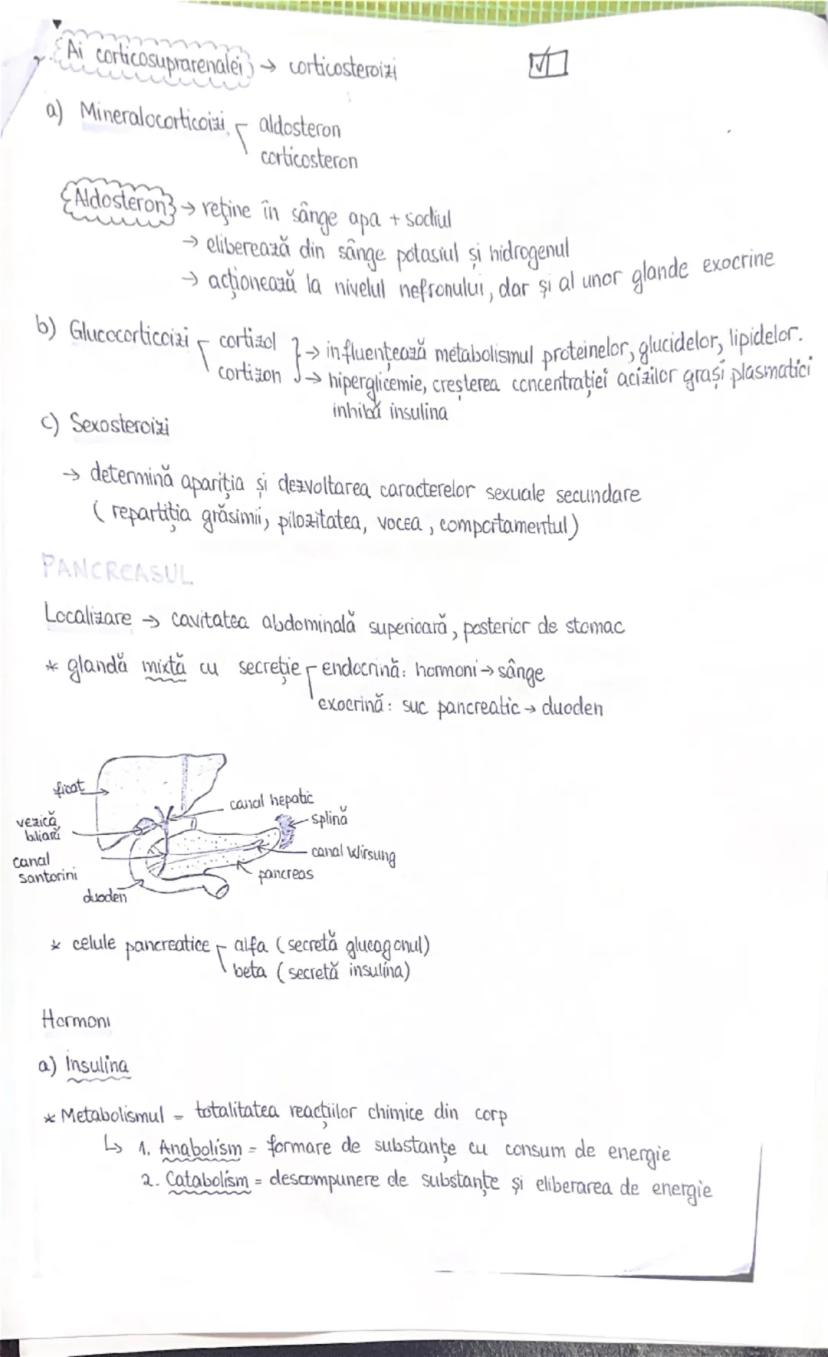 Ai corticosuprarenalei → corticosteroizi
a) Mineralocorticoizi aldosteron
corticosteron
Aldosteron → reține în sânge apa + sodiul
→ eliberează din sânge potasiul și hidrogenul
→ acționează la nivelul nefronului, dar și al unor glande exocrine
b) Glucocorticoizi cortizol } → influențează metabolismul proteinelor, glucidelor, lipidelor.
cortizon → hiperglicemie, creșterea concentrației acizilor grași plasmatici
inhibă insulina
c) Sexosteroizi
→ determină apariția și dezvoltarea caracterelor sexuale secundare
(repartiția grăsimii, pilozitatea, vocea, comportamentul)
PANCREASUL
Localizare → cavitatea abdominală superioară, posterior de stomac
* glandă mixtă cu secreție endocrină: hormoni → sânge
exocrină: suc pancreatic → duoden
ficat
canal hepatic
vezică
biliară
splină
canal Wirsung
canal
santorini
pancreas
duoden
* celule pancreatice alfa (secretă glucagonul)
beta (secretă insulina)
Hormoni
a) Insulina
* Metabolismul = totalitatea reacțiilor chimice din corp
↳ 1. Anabolism = formare de substanțe cu consum de energie
2. Catabolism = descompunere de substanțe și eliberarea de energie